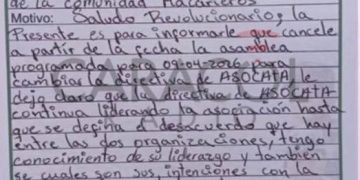 de la comunidad Macaneros
Motivo: Saludo Revolucionario, la
Presente es para informarle que cancele
a partir de la fecha la asamblea
programada para 09-04-2026 para
cambiar la directiva de ASOCATA, le
dejo claro que la directiva de ASOCATA
continua liderando la asociación hasta
que se defina el desacuerdo que hay
entre las dos organizaciones, tengo
conocimiento de su liderazgo y también
se cuales son sus, intenciones con la